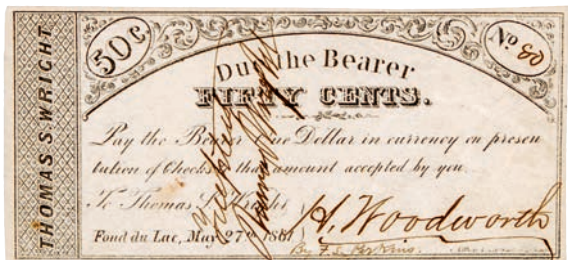 THOMAS S. WRIGHT
50¢
No 80
Due the Bearer
FIFTY CENTS.
Pay the Bearer One Dollar in currency on presen
tation of Checks to that amount accepted by you.
To Thomas S. Wright
Fond du Lac, May 27th 1861
Accepted
Thomas S. Wright
A. Woodworth
By F. S. Perkins.